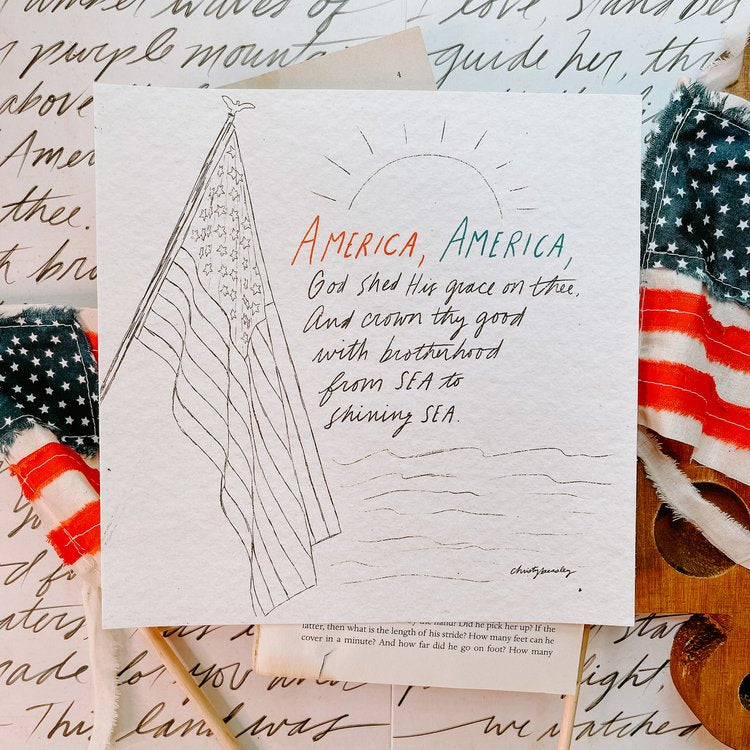 number waves of
I love, stand bes
purple mountai
guide her, thr
above
4
Amer
thee.
AMERICA, AMERICA,
God shed His grace on thee,
And crown thy good
with brotherhood
from SEA to
shining SEA.
christybeasley
the hand? Did he pick her up? If the
latter, then what is the length of his stride? How many feet can he
cover in a minute? And how far did he go on foot? How many
made for you and
light,
This land was
we watched